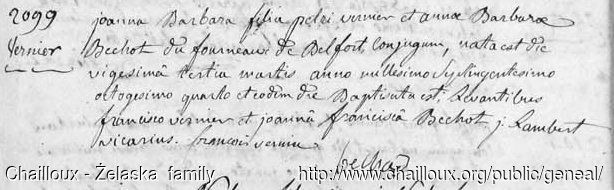 2099
vernier
joanna Barbara filia petri vernier et annæ Barbaræ
Bechot du fourneau de Belfort, Conjugum, nata est die
vigesimâ tertia martis anno millesimo Septingentesimo
octogesimo quarto et eodem die Baptisata est, Levantibus
francisco vernier et joannâ franciscâ Bechot j. Lambert
vicarius. françois vernie
bechat
Chailloux - Żelaska family
http://www.chailloux.org/public/geneal/